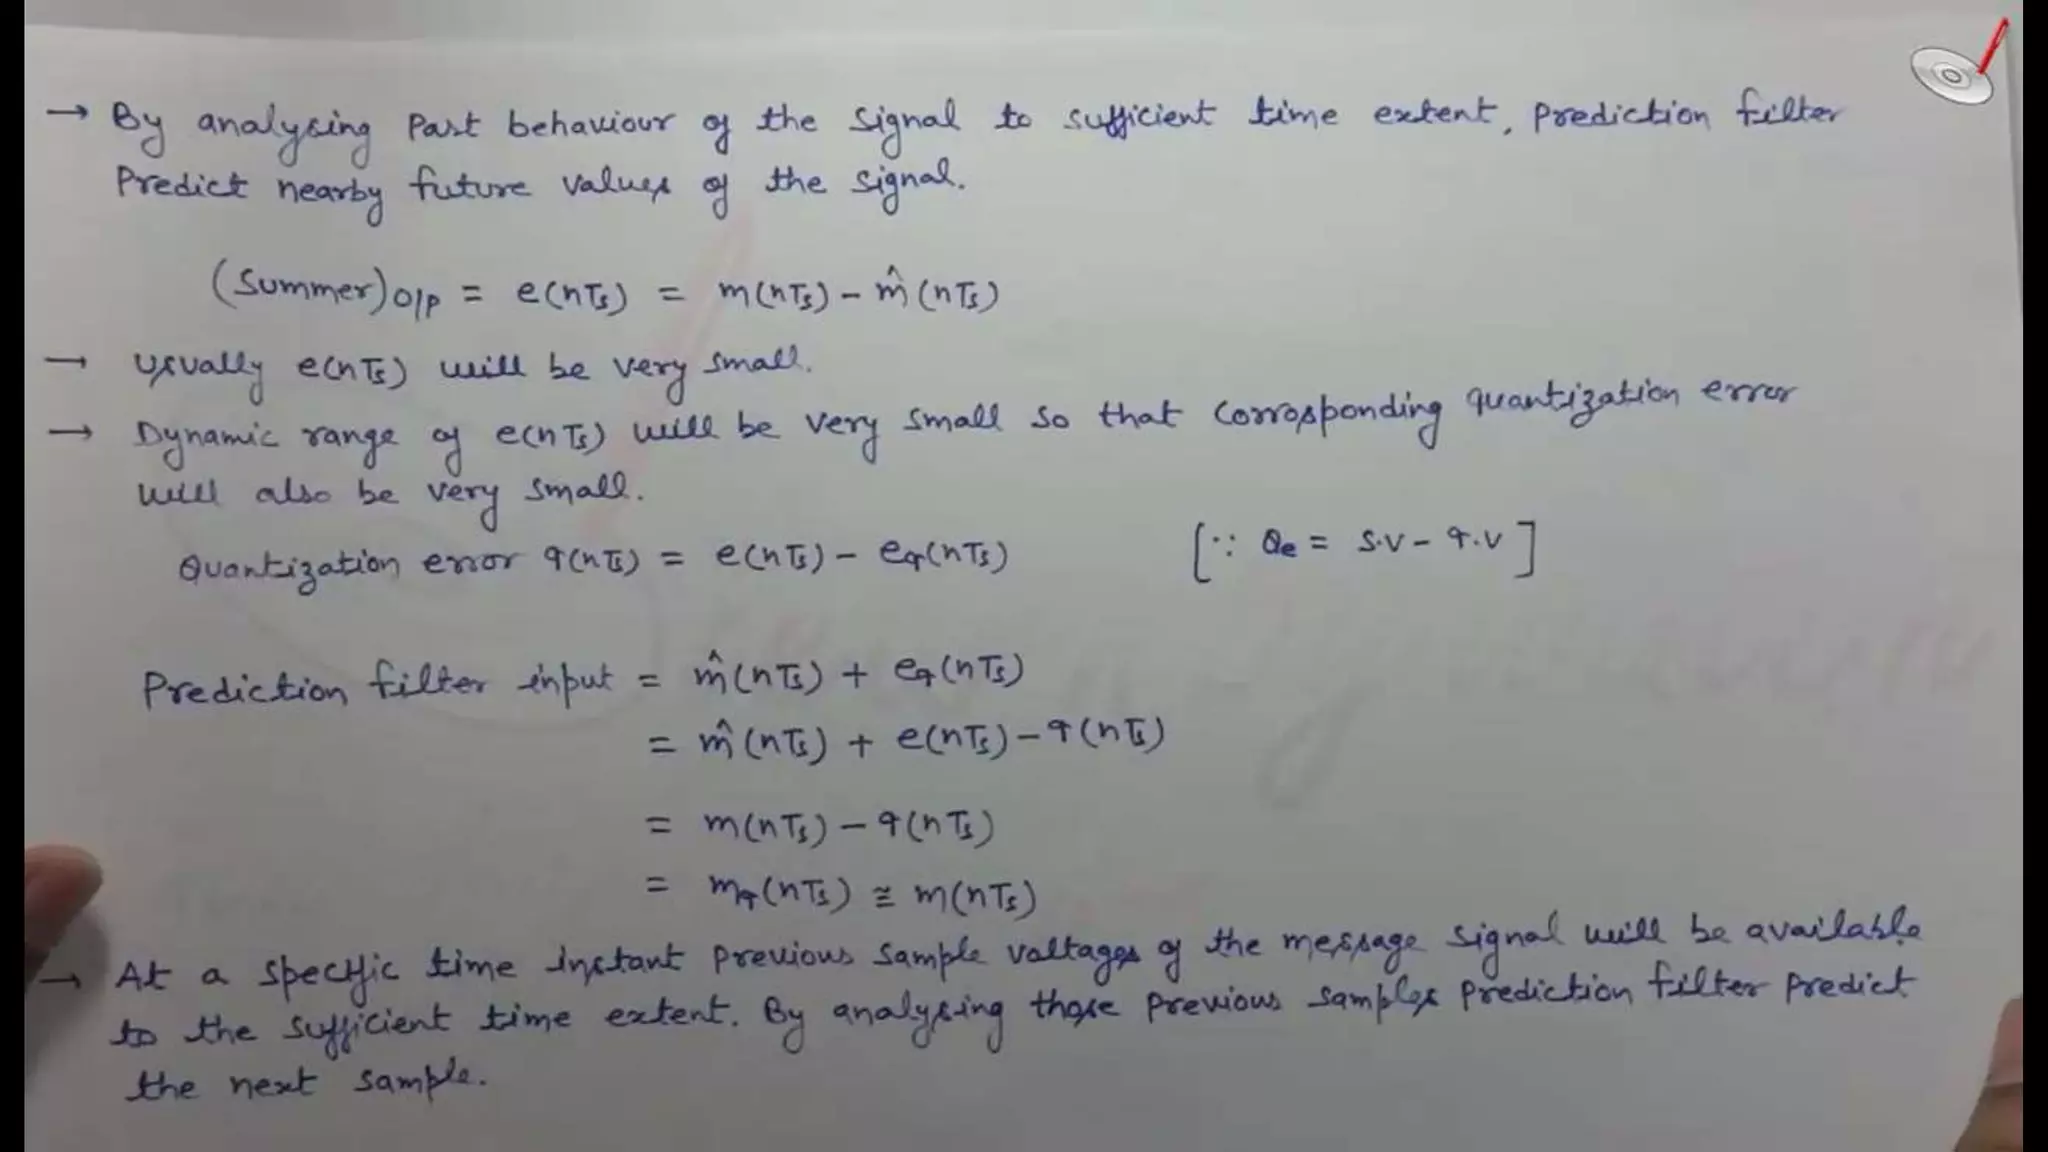 → By analysing Past behaviour of the signal to sufficient time extent, Prediction filter
Predict nearby future values of the signal.
(Summer)O/P = e(nTs) = m(nTs) - m̂(nTs)
→ Usually e(nTs) will be very small.
→ Dynamic range of e(nTs) will be very small so that corrosponding quantization error
will also be very small.
Quantization error q(nTs) = e(nTs) - eq(nTs) [∵ Qe = S.V - q.V]
Prediction filter input = m̂(nTs) + eq(nTs)
= m̂(nTs) + e(nTs) - q(nTs)
= m(nTs) - q(nTs)
= mq(nTs) ≅ m(nTs)
→ At a specific time instant previous sample voltages of the message signal will be available
to the sufficient time extent. By analysing those previous samples prediction filter predict
the next sample.